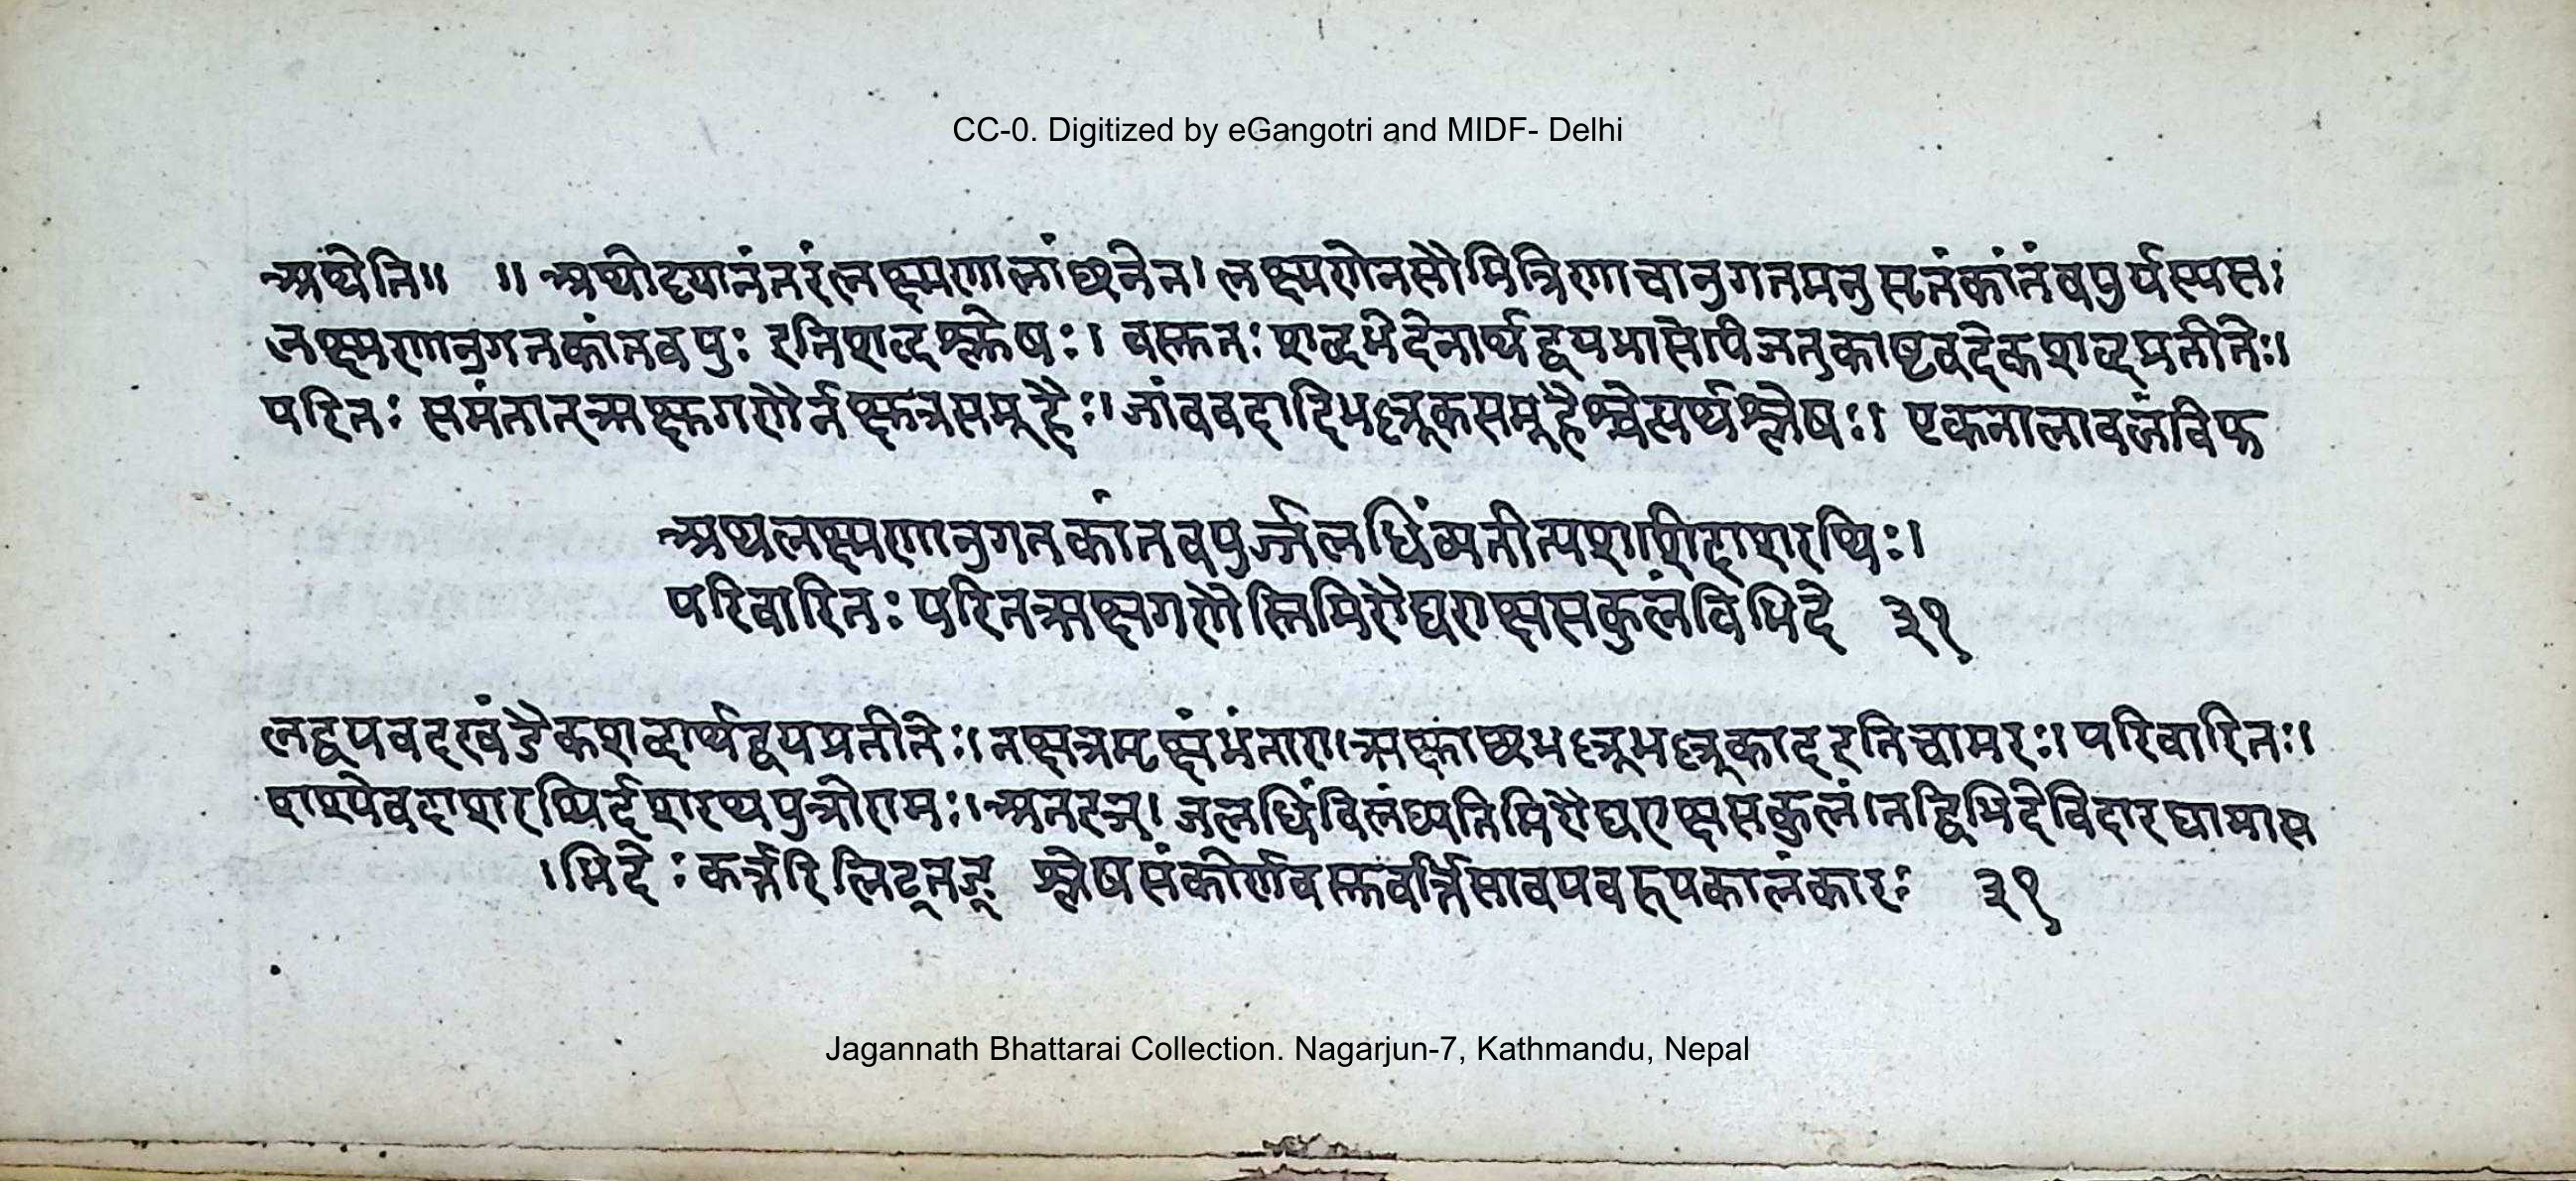 CC-0. Digitized by eGangotri and MIDF- Delhi
अथेति॥ ॥ अथोदयानंतरं लक्ष्मणा लांछनेन। लक्ष्मणेन सौमित्रिणा चानुगतमनुसृतं कांतं वपुर्यस्य स।
लक्ष्मणानुगतकांतवपुः इति शब्दश्लेषः। वस्तुतः शब्दभेदेनार्थद्वयभासेपि जतुकाष्टवदेकशब्दप्रतीतेः।
परितः समंतात् ऋक्षगणैर्नक्षत्रसमूहैः। जांबवदादिभल्लूकसमूहैश्चेत्यर्थश्लेषः। एकनालावलंविफ
अथ लक्ष्मणानुगतकांतवपुर्ज्जलधिं व्यतीत्य शशी दाशरथिः।
परिवारितः परित ऋक्षगणैस्तिमिरौघराक्षसकुलं विभिदे ३१
लद्वयवदखंडैकशब्दार्थद्वयप्रतीतेः। नक्षत्रमृक्षं भं तारा। ऋक्षाछभल्लूभल्लूका इति चामरः। परिवारितः।
शश्येव दाशरथिर्दशरथपुत्रो रामः। अत इञ्। जलधिं विलंघ्य तिमिरौघराक्षसकुलं। तद्विभिदे विदारयामास
। भिदेः कर्त्तरि लिट् तङ् श्लेषसंकीर्णवस्तुवर्त्तिसावयवरूपकालंकारः ३१
Jagannath Bhattarai Collection. Nagarjun-7, Kathmandu, Nepal